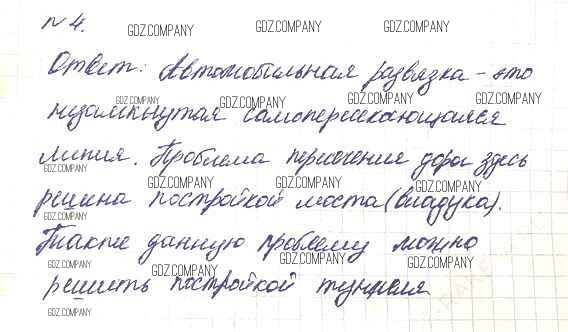 № 4.
GDZ.COMPANY GDZ.COMPANY GDZ.COMPANY
Ответ: Автомобильная развязка - это
GDZ.COMPANY GDZ.COMPANY GDZ.COMPANY GDZ.COMPANY
незамкнутая самопересекающаяся
линия. Проблема пересечения дорог здесь
GDZ.COMPANY GDZ.COMPANY GDZ.COMPANY GDZ.COMPANY
решена постройкой моста (виадука).
GDZ.COMPANY
Также данную проблему можно
GDZ.COMPANY GDZ.COMPANY GDZ.COMPANY GDZ.COMPANY
решить постройкой туннеля
GDZ.COMPANY